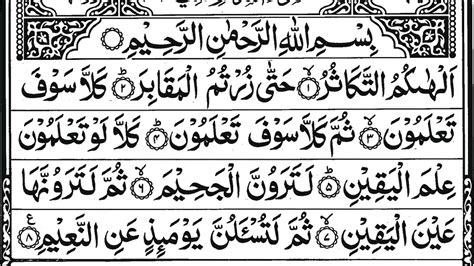 بِسْمِ اللهِ الرَّحْمٰنِ الرَّحِيْمِ ۝
اَلْهٰىكُمُ التَّكَاثُرُ ۙ‏﴿۱﴾ حَتّٰى زُرْتُمُ الْمَقَابِرَ ؕ‏﴿۲﴾ كَلَّا سَوْفَ
تَعْلَمُوْنَ ۙ‏﴿۳﴾ ثُمَّ كَلَّا سَوْفَ تَعْلَمُوْنَ ؕ‏﴿۴﴾ كَلَّا لَوْ تَعْلَمُوْنَ
عِلْمَ الْيَقِيْنِ ؕ‏﴿۵﴾ لَتَرَوُنَّ الْجَحِيْمَ ۙ‏﴿۶﴾ ثُمَّ لَتَرَوُنَّهَا
عَيْنَ الْيَقِيْنِ ۙ‏﴿۷﴾ ثُمَّ لَتُسْـَٔلُنَّ يَوْمَىِٕذٍ عَنِ النَّعِيْمِ ‏﴿۸﴾